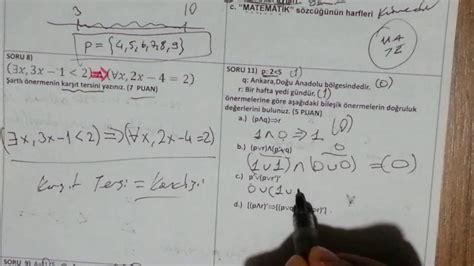 3 10
P = {4,5,6,7,8,9}
c. "MATEMATİK" sözcüğünün harfleri
SORU 8)
(∃x, 3x − 1 < 2)⇒(∀x, 2x − 4 = 2)
Şartlı önermenin karşıt tersini yazınız. (7 PUAN)
(∃x, 3x-1<2) ⇒ (∀x, 2x-4=2)
Karşıt Tersi = Kendisi
SORU 11) p: 2<5 (1)
q: Ankara,Doğu Anadolu bölgesindedir. (0)
r: Bir hafta yedi gündür. (1)
önermelerine göre aşağıdaki bileşik önermelerin doğruluk
değerlerini bulunuz. (5 PUAN)
a.) (p∧q)⇒r
1∧0 ⇒ 1 (0)
0
(1∨1) ∧ (0∨0) = (0)
c.)
0∨(1∨
d.)
SORU 9)